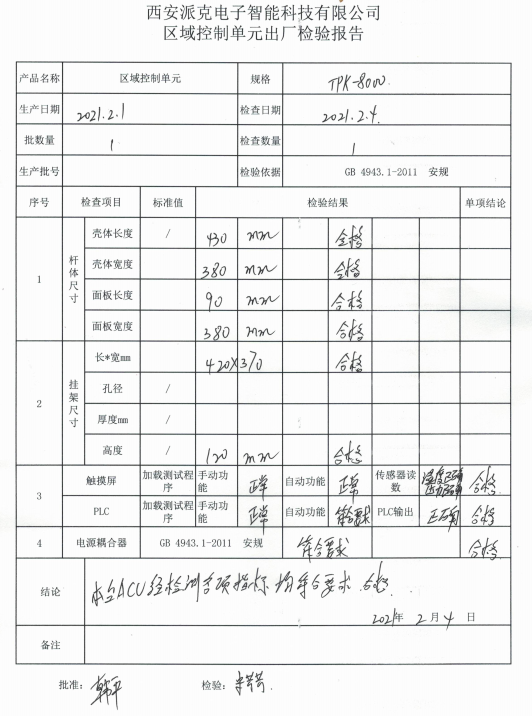 西安派克电子智能科技有限公司
区域控制单元出厂检验报告
产品名称 区域控制单元 规格 TPK-8000
生产日期 2021.2.1 检查日期 2021.2.4.
批数量 1 检查数量 1
生产批号 检验依据 GB 4943.1-2011 安规
序号 检查项目 标准值 检验结果 单项结论
1 杆体尺寸 壳体长度 / 430 mm 合格
壳体宽度 380 mm 合格
面板长度 90 mm 合格
面板宽度 380 mm 合格
2 挂架尺寸 长*宽mm 420X370 合格
孔径 /
厚度mm /
高度 / 120 mm 合格
3 触摸屏 加载测试程序 手动功能 正常 自动功能 正常 传感器读数 合格
PLC 加载测试程序 手动功能 正常 自动功能 符合要求 PLC输出 正确 合格
4 电源耦合器 GB 4943.1-2011 安规 符合要求 合格
结论 本台ACU经检测各项指标均符合要求.合格
2021年 2月 4 日
备注
批准: 检验: